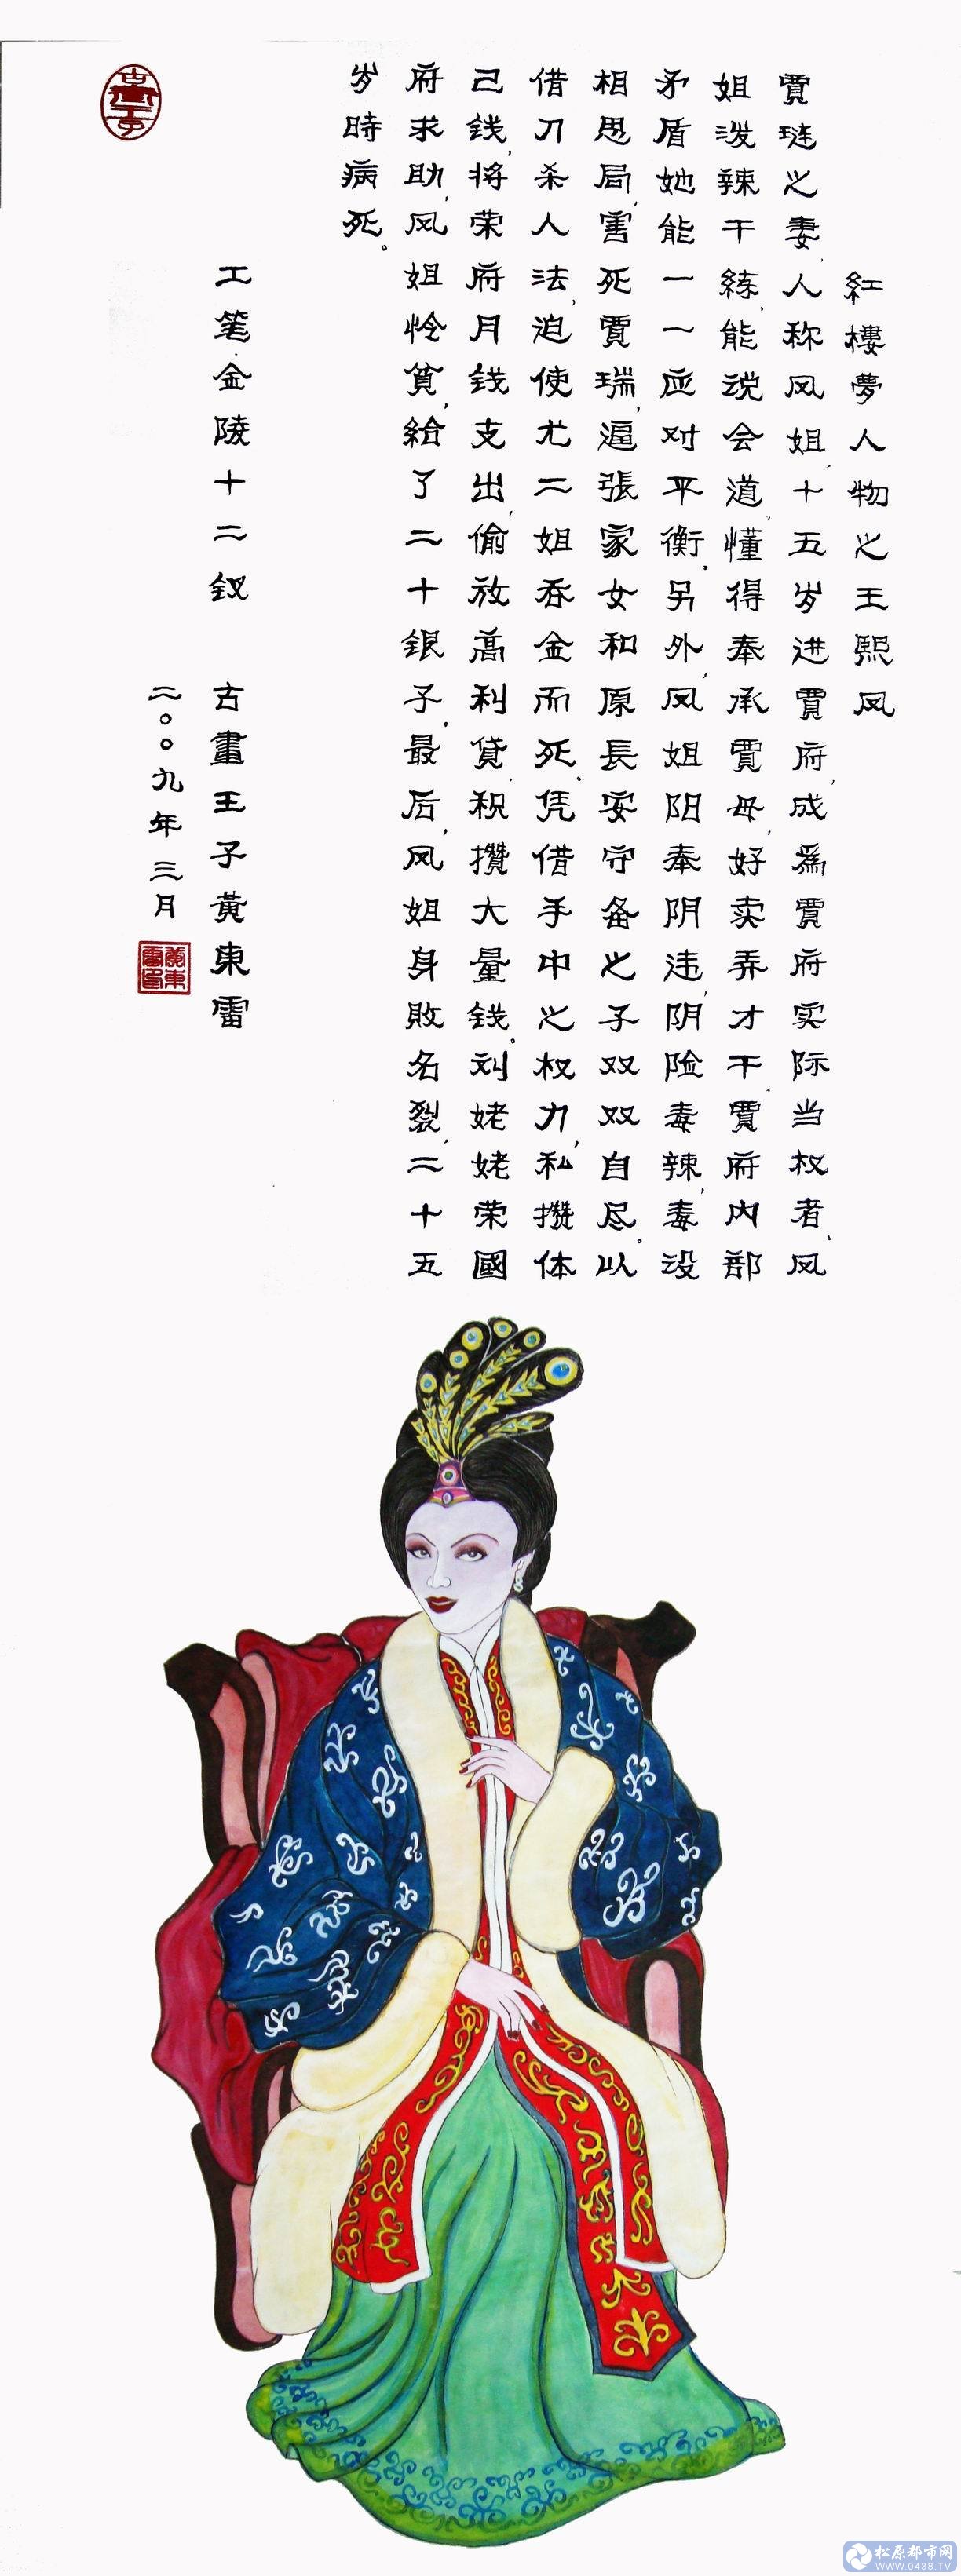 紅樓夢人物之王熙凤
賈琏之妻,人称凤姐,十五岁进賈府,成為賈府实际当权者,凤
姐泼辣干練,能说会道,懂得奉承賈母,好卖弄才干,賈府内部
矛盾她能一一应对平衡。另外,凤姐阳奉阴违,阴险毒辣,毒设
相思局,害死賈瑞,逼張家女和原長安守备之子双双自尽。以
借刀杀人法,迫使尤二姐吞金而死。凭借手中之权力,私攒体
己钱,将荣府月钱支出,偷放高利贷,积攒大量钱。刘姥姥荣國
府求助,凤姐怜貧,给了二十银子,最后,凤姐身败名裂,二十五
岁時病死。
工笔金陵十二钗 古畫王子黃東雷
二〇〇九年三月
松原都市网
WWW.0438.TV